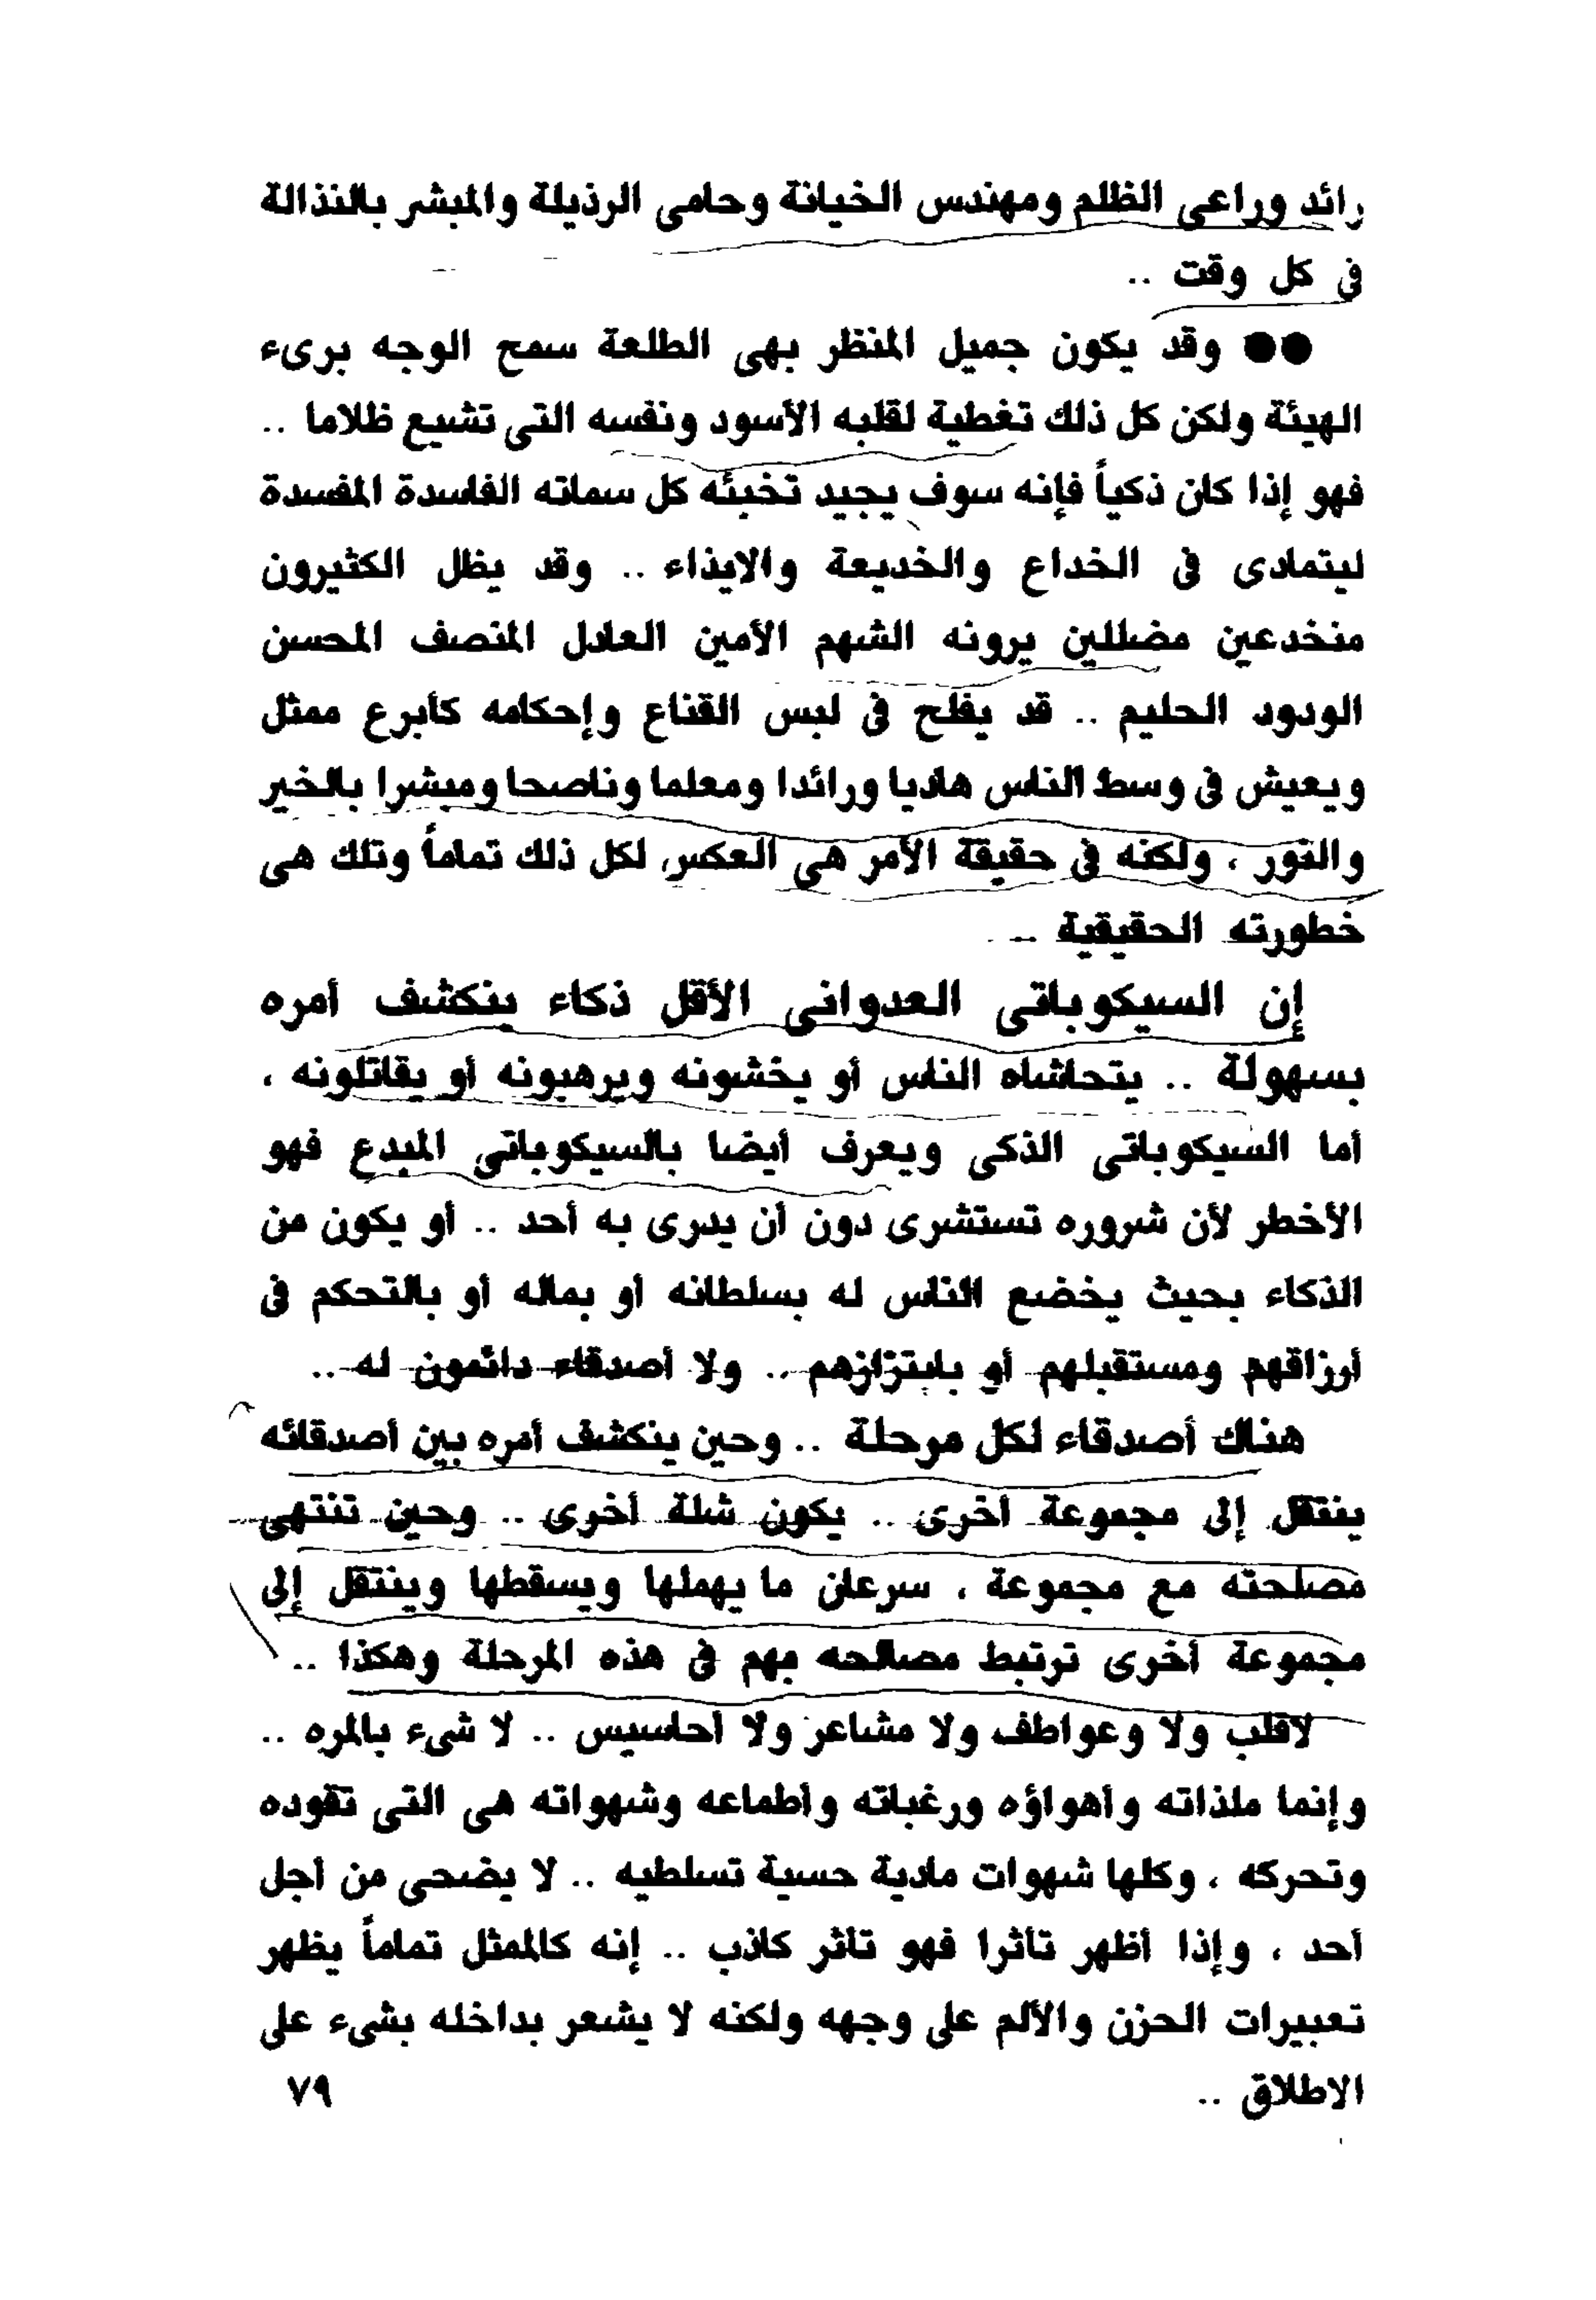 رائد وراعى الظلم ومهندس الخيانة وحامى الرذيلة والمبشر بالنذالة
فى كل وقت ..
●● وقد يكون جميل المنظر بهى الطلعة سمح الوجه برىء
الهيئة ولكن كل ذلك تغطية لقلبه الأسود ونفسه التى تشيع ظلاما ..
فهو إذا كان ذكياً فإنه سوف يجيد تخبئه كل سماته الفاسدة المفسدة
ليتمادى فى الخداع والخديعة والايذاء .. وقد يظل الكثيرون
منخدعين مضللين يرونه الشهم الأمين العادل المنصف المحسن
الودود الحليم .. قد يفلح فى لبس القناع وإحكامه كأبرع ممثل
ويعيش فى وسط الناس هاديا ورائدا ومعلما وناصحا ومبشرا بالخير
والنور ، ولكنه فى حقيقة الأمر هى العكس لكل ذلك تماماً وتلك هى
خطورته الحقيقية ..
إن السيكوباتى العدوانى الأقل ذكاء ينكشف أمره
بسهولة .. يتحاشاه الناس أو يخشونه ويرهبونه أو يقاتلونه ،
أما السيكوباتى الذكى ويعرف أيضا بالسيكوباتى المبدع فهو
الأخطر لأن شروره تستشرى دون أن يدرى به أحد .. أو يكون من
الذكاء بحيث يخضع الناس له بسلطانه أو بماله أو بالتحكم فى
أرزاقهم ومستقبلهم أو بابتزازهم .. ولا أصدقاء دائمون له ..
هناك أصدقاء لكل مرحلة .. وحين ينكشف أمره بين أصدقائه
ينتقل إلى مجموعة أخرى .. يكون شلة أخرى .. وحين تنتهى
مصلحته مع مجموعة ، سرعان ما يهملها ويسقطها وينتقل إلى
مجموعة أخرى ترتبط مصالحه بهم فى هذه المرحلة وهكذا ..
لاقلب ولا وعواطف ولا مشاعر ولا أحاسيس .. لا شىء بالمره ..
وإنما ملذاته وأهواؤه ورغباته وأطماعه وشهواته هى التى تقوده
وتحركه ، وكلها شهوات مادية حسية تسلطيه .. لا يضحى من أجل
أحد ، وإذا أظهر تأثرا فهو تأثر كاذب .. إنه كالممثل تماماً يظهر
تعبيرات الحزن والألم على وجهه ولكنه لا يشعر بداخله بشىء على
الاطلاق ..
٧٩